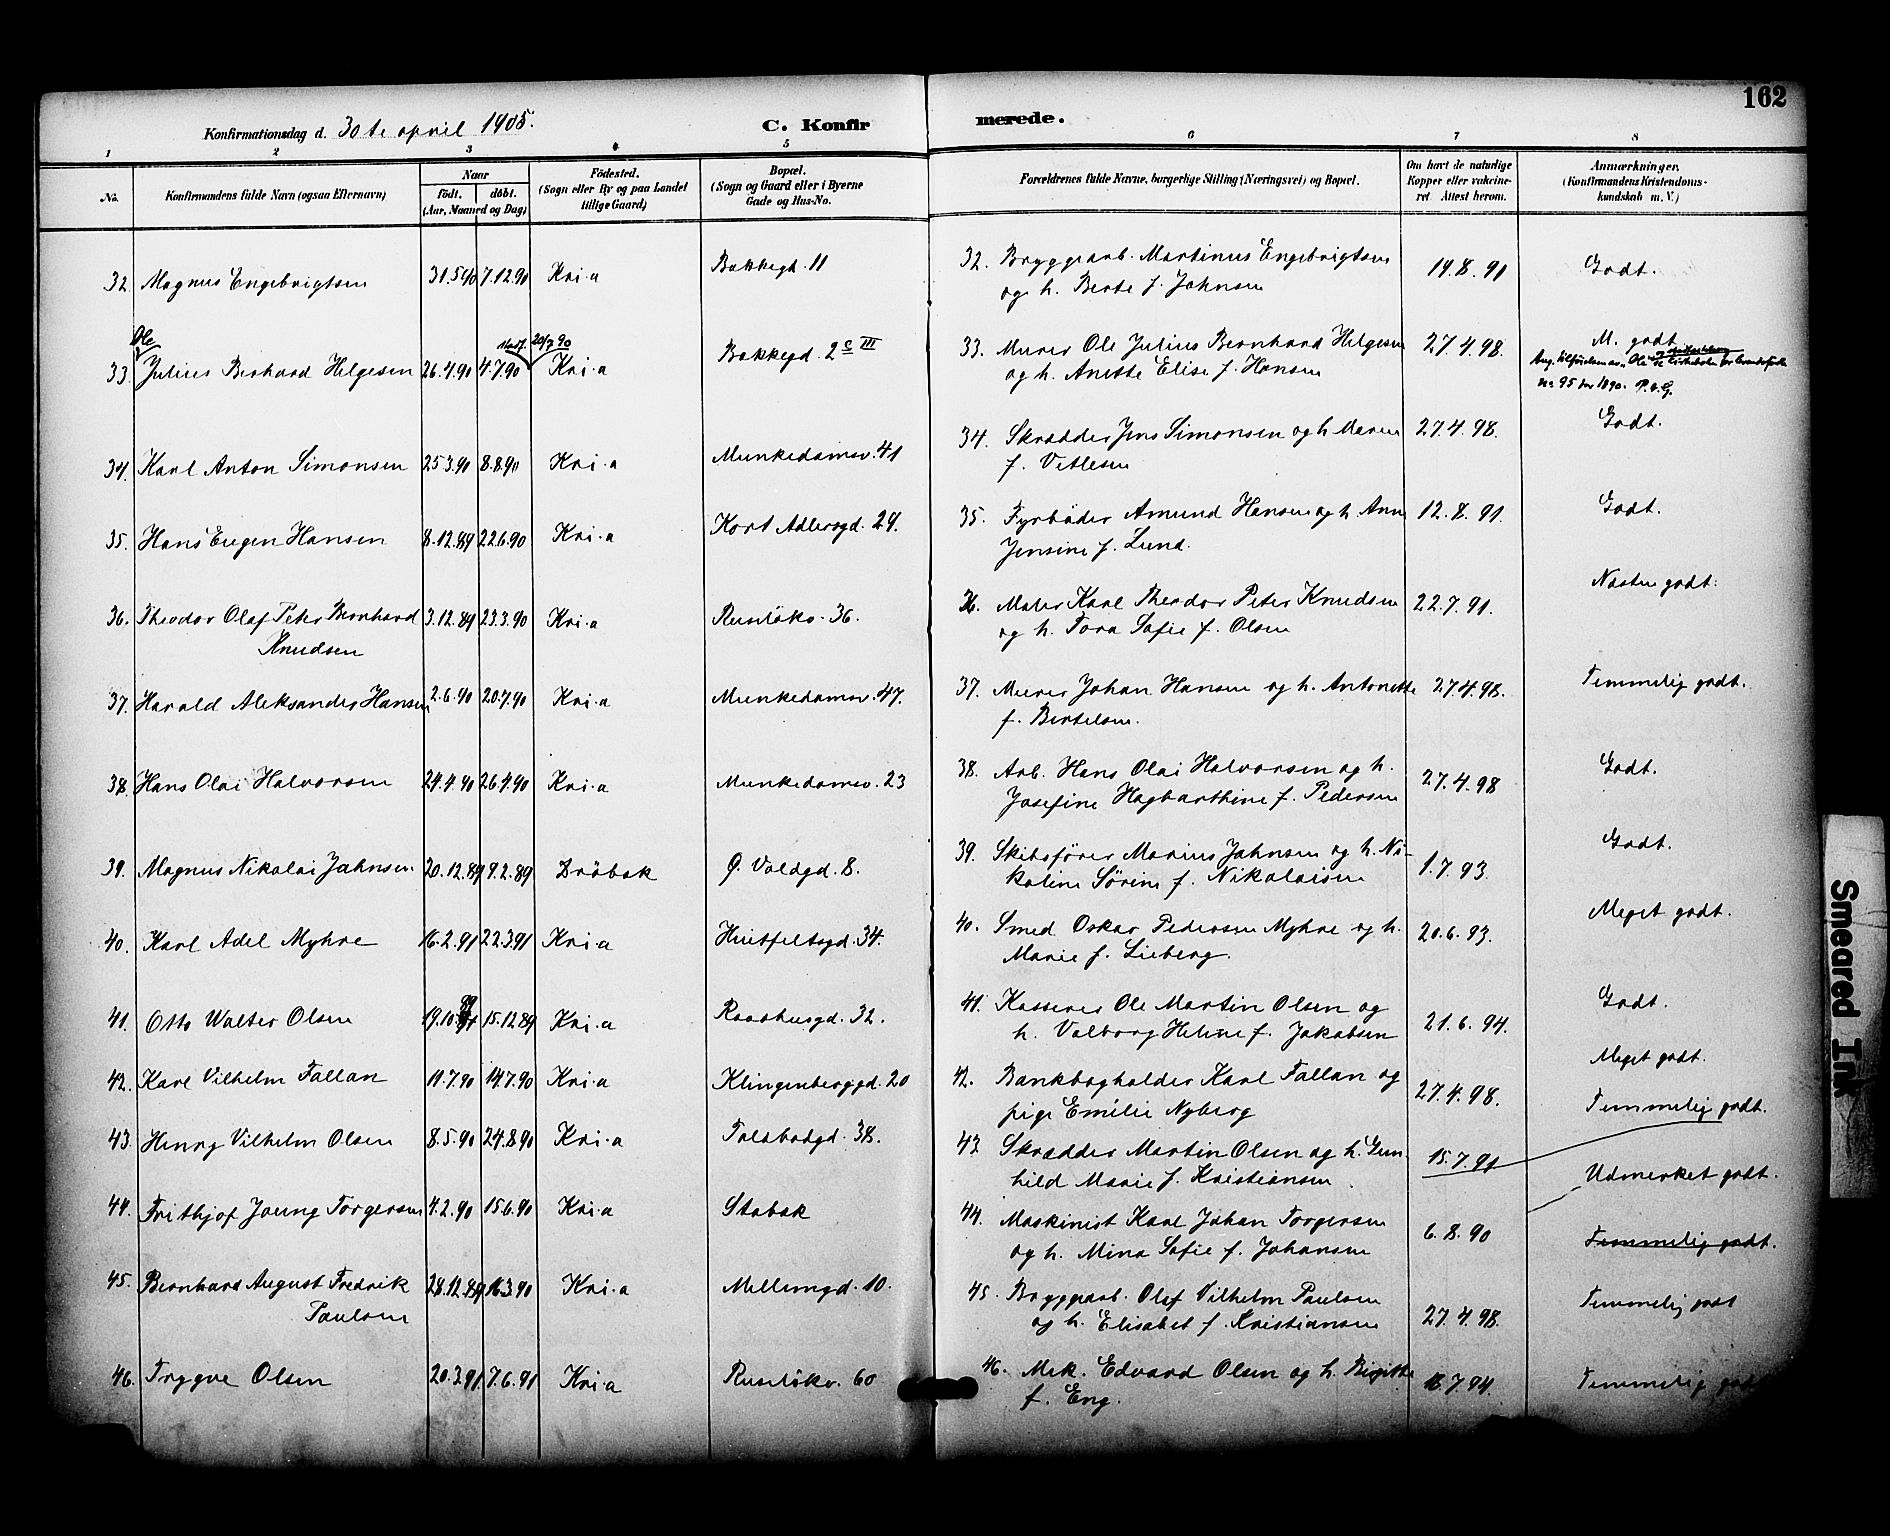 162
Konfirmationsdag d. 30te april 1905.
C. Konfirmerede.
1 2 3 4 5 6 7 8
No.
Konfirmandens fulde Navn (ogsaa Efternavn)
Naar
født. døbt.
(Aar, Maaned og Dag)
Fødested.
(Sogn eller By og paa Landet
tillige Gaard)
Bopæl.
(Sogn og Gaard eller i Byerne
Gade og Hus-No.
Forældrenes fulde Navne, borgerlige Stilling (Næringsvei) og Bopæl.
Om havt de naturlige
Kopper eller vakcine-
ret Attest herom.
Anmærkninger.
(Konfirmandens Kristendoms-
kundskab m. V.)
32. Magnus Engebrigtsen 31.5.90 7.12.90 Kri.a Bakkegd. 11
32. Bryggearb. Martinus Engebrigtsen 19.8.91 Godt.
og h. Berte f. Johnsen
Ole
20/7 90
33. Julius Berhard Helgesen 26.4.90 4.7.90 Kri.a Bakkegd. 2 c III
33. Murer Ole Julius Bernhard Helgesen 27.4.98. M. godt
og h. Anette Elise f. Hansen
No 95 for 1890. P.v.G.
34. Karl Anton Simonsen 25.3.90 8.8.90 Kri.a Munkedamsv. 41
34. Skrædder Jens Simonsen og h. Maren 27.4.98. Godt.
f. Vetlesen
35. Hans Eugen Hansen 8.12.89 22.6.90 Kri.a Kort Adlersgd. 29.
35. Fyrbøder Amund Hansen og h. Anne 12.8.91. Godt.
Jensine f. Lund.
36. Theodor Olaf Peter Bernhard 3.12.89 23.3.90 Kri.a Ruseløkv. 36.
Knudsen
36. Maler Karl Theodor Peter Knudsen 22.7.91. Næsten godt.
og h. Tora Sofie f. Olsen
37. Harald Aleksander Hansen 2.6.90 20.7.90 Kri.a Munkedamsv. 47.
37. Murer Johan Hansen og h. Antonette 27.4.98. Temmelig godt.
f. Bertelsen.
38. Hans Olai Halvorsen 24.4.90 26.4.90 Kri.a Munkedamsv. 23
38. Arb. Hans Olai Halvorsen og h. 27.4.98 Godt.
Josefine Hagbarthine f. Pedersen
39. Magnus Nikolai Jahnsen. 20.12.89 9.2.89 Drøbak Ø. Voldgd. 8.
39. Skibsfører Marius Jahnsen og h. Ni- 1.7.93. Godt.
koline Sørine f. Nikolaisen
40. Karl Adel Myhre 16.2.91 22.3.91 Kri.a Huitfeltsgd. 34.
40. Smed Oskar Pedersen Myhre og h. 20.6.93. Meget godt.
Marie f. Lieberg.
41. Otto Walter Olsen 19.10.89 15.12.89 Kri.a Raadhusgd. 32.
41. Kasserer Ole Martin Olsen og 21.6.94. Godt.
h. Valborg Heline f. Jakobsen
42. Karl Vilhelm Fallan 11.7.90 14.7.90 Kri.a Klingenberggd. 20
42. Bankbogholder Karl Fallan og 27.4.98. Meget godt.
pige Emilie Nyberg
43. Henry Vilhelm Olsen 8.5.90 24.8.90 Kri.a Toldbodgd. 38.
43. Skrædder Martin Olsen og h. Gun- 15.7.91 Temmelig godt.
hild Marie f. Kristiansen.
44. Frithjof Joung Torgersen 4.2.90 15.6.90 Kri.a Stabæk
44. Maskinist Karl Johan Torgersen 6.8.90 Udmerket godt.
og h. Mina Sofie f. Johansen
Temmelig godt.
45. Bernhard August Fredrik 28.12.89 16.3.90 Kri.a Mellemgd. 10.
Paulsen
45. Bryggearb. Olaf Vilhelm Paulsen 27.4.98. Temmelig godt
og h. Elisabet f. Kristiansen
46. Trygve Olsen 20.3.91. 7.6.91 Kri.a Ruseløkv. 60
46. Mek. Edvard Olsen og h. Birgitte 18.7.94. Temmelig godt
f. Eng.
Smeared Ink